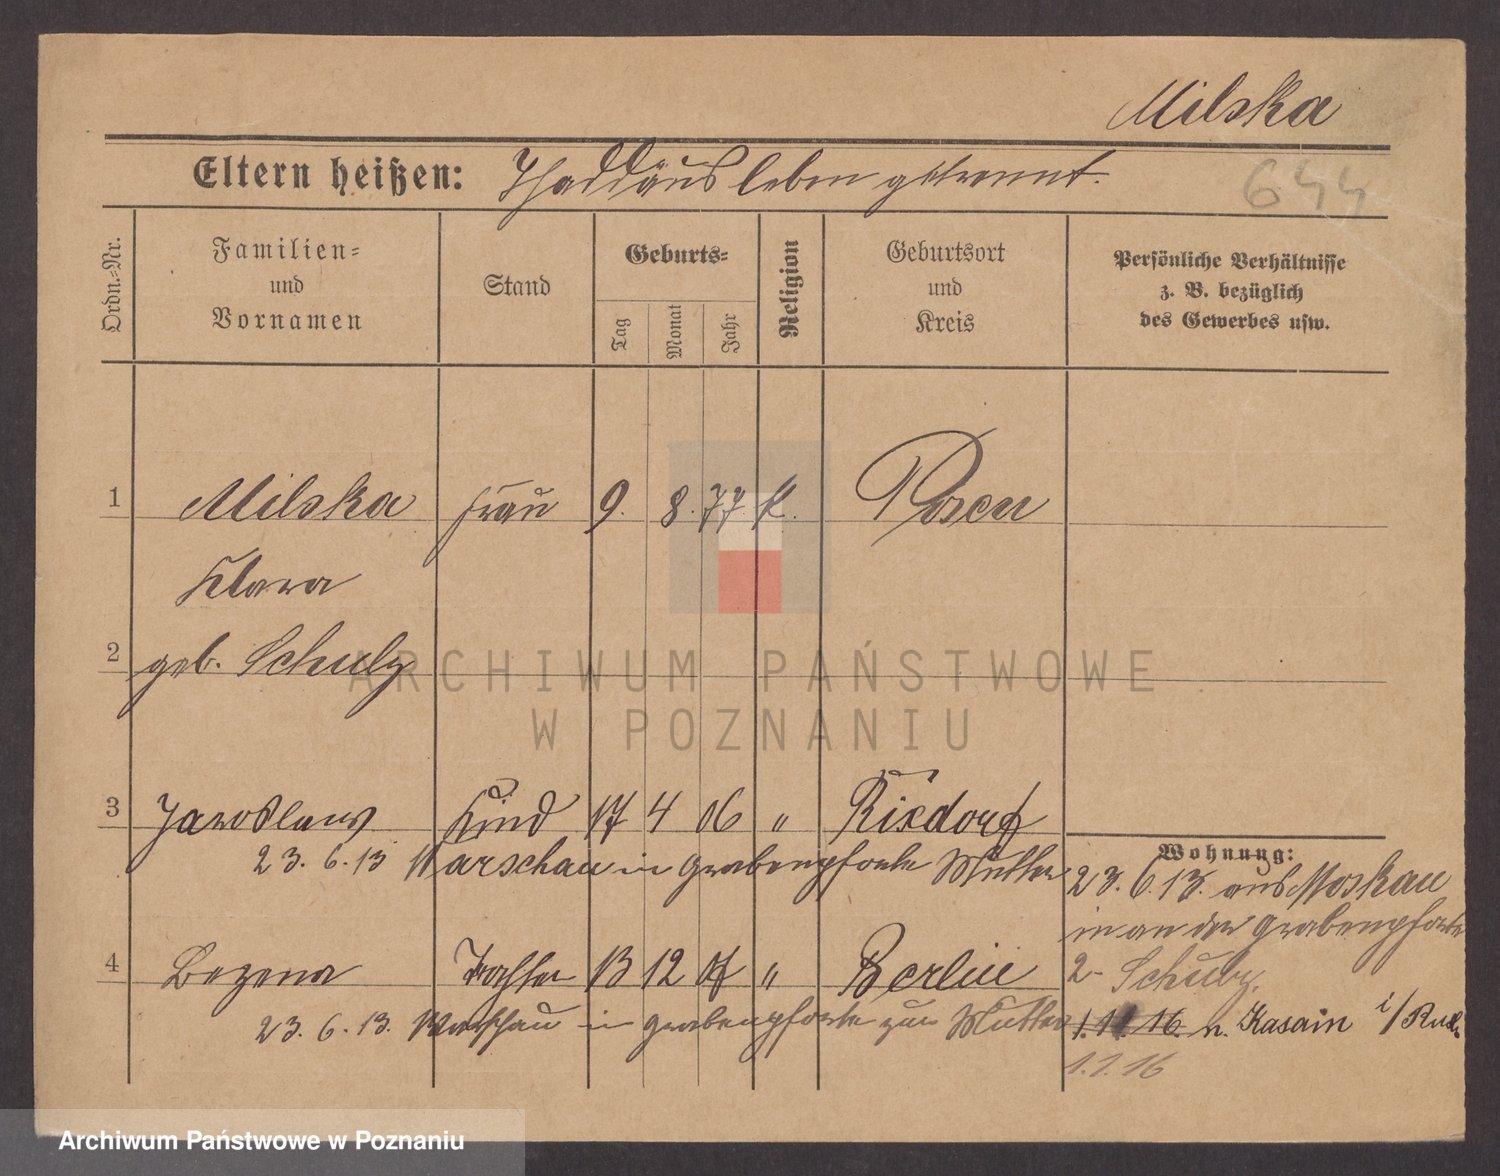 Milska
Eltern heißen: Thaddäus leben getrennt.
644
Ordn.-Nr.
Familien-
und
Vornamen
Stand
Geburts-
Tag
Monat
Jahr
Religion
Geburtsort
und
Kreis
Persönliche Verhältnisse
z. B. bezüglich
des Gewerbes usw.
1 Milska Frau 9. 8. 77. K. Posen
Klara
2 geb. Schulz
ARCHIWUM PAŃSTWOWE
W POZNANIU
3 Jaroslaus Kind 17 4 06 " Rixdorf
23. 6. 13 Warschau in Grabenpforte Mutter
4 Bezena Tochter 13 12 07 " Berlin
23. 6. 13. Warschau in Grabenpforte zur Mutter
Wohnung:
23. 6. 13. aus Moskau
in an der Grabenpforte
2- Schulz.
1. 16 n. Kasain i/Rußl.
1. 1. 16
Archiwum Państwowe w Poznaniu